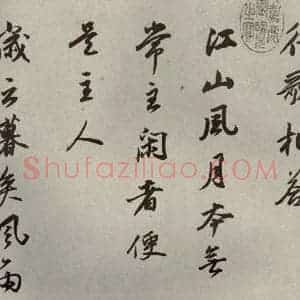 江山風月本無
常主閑者便
是主人
歲云暮矣風雨
Shufaziliao.com